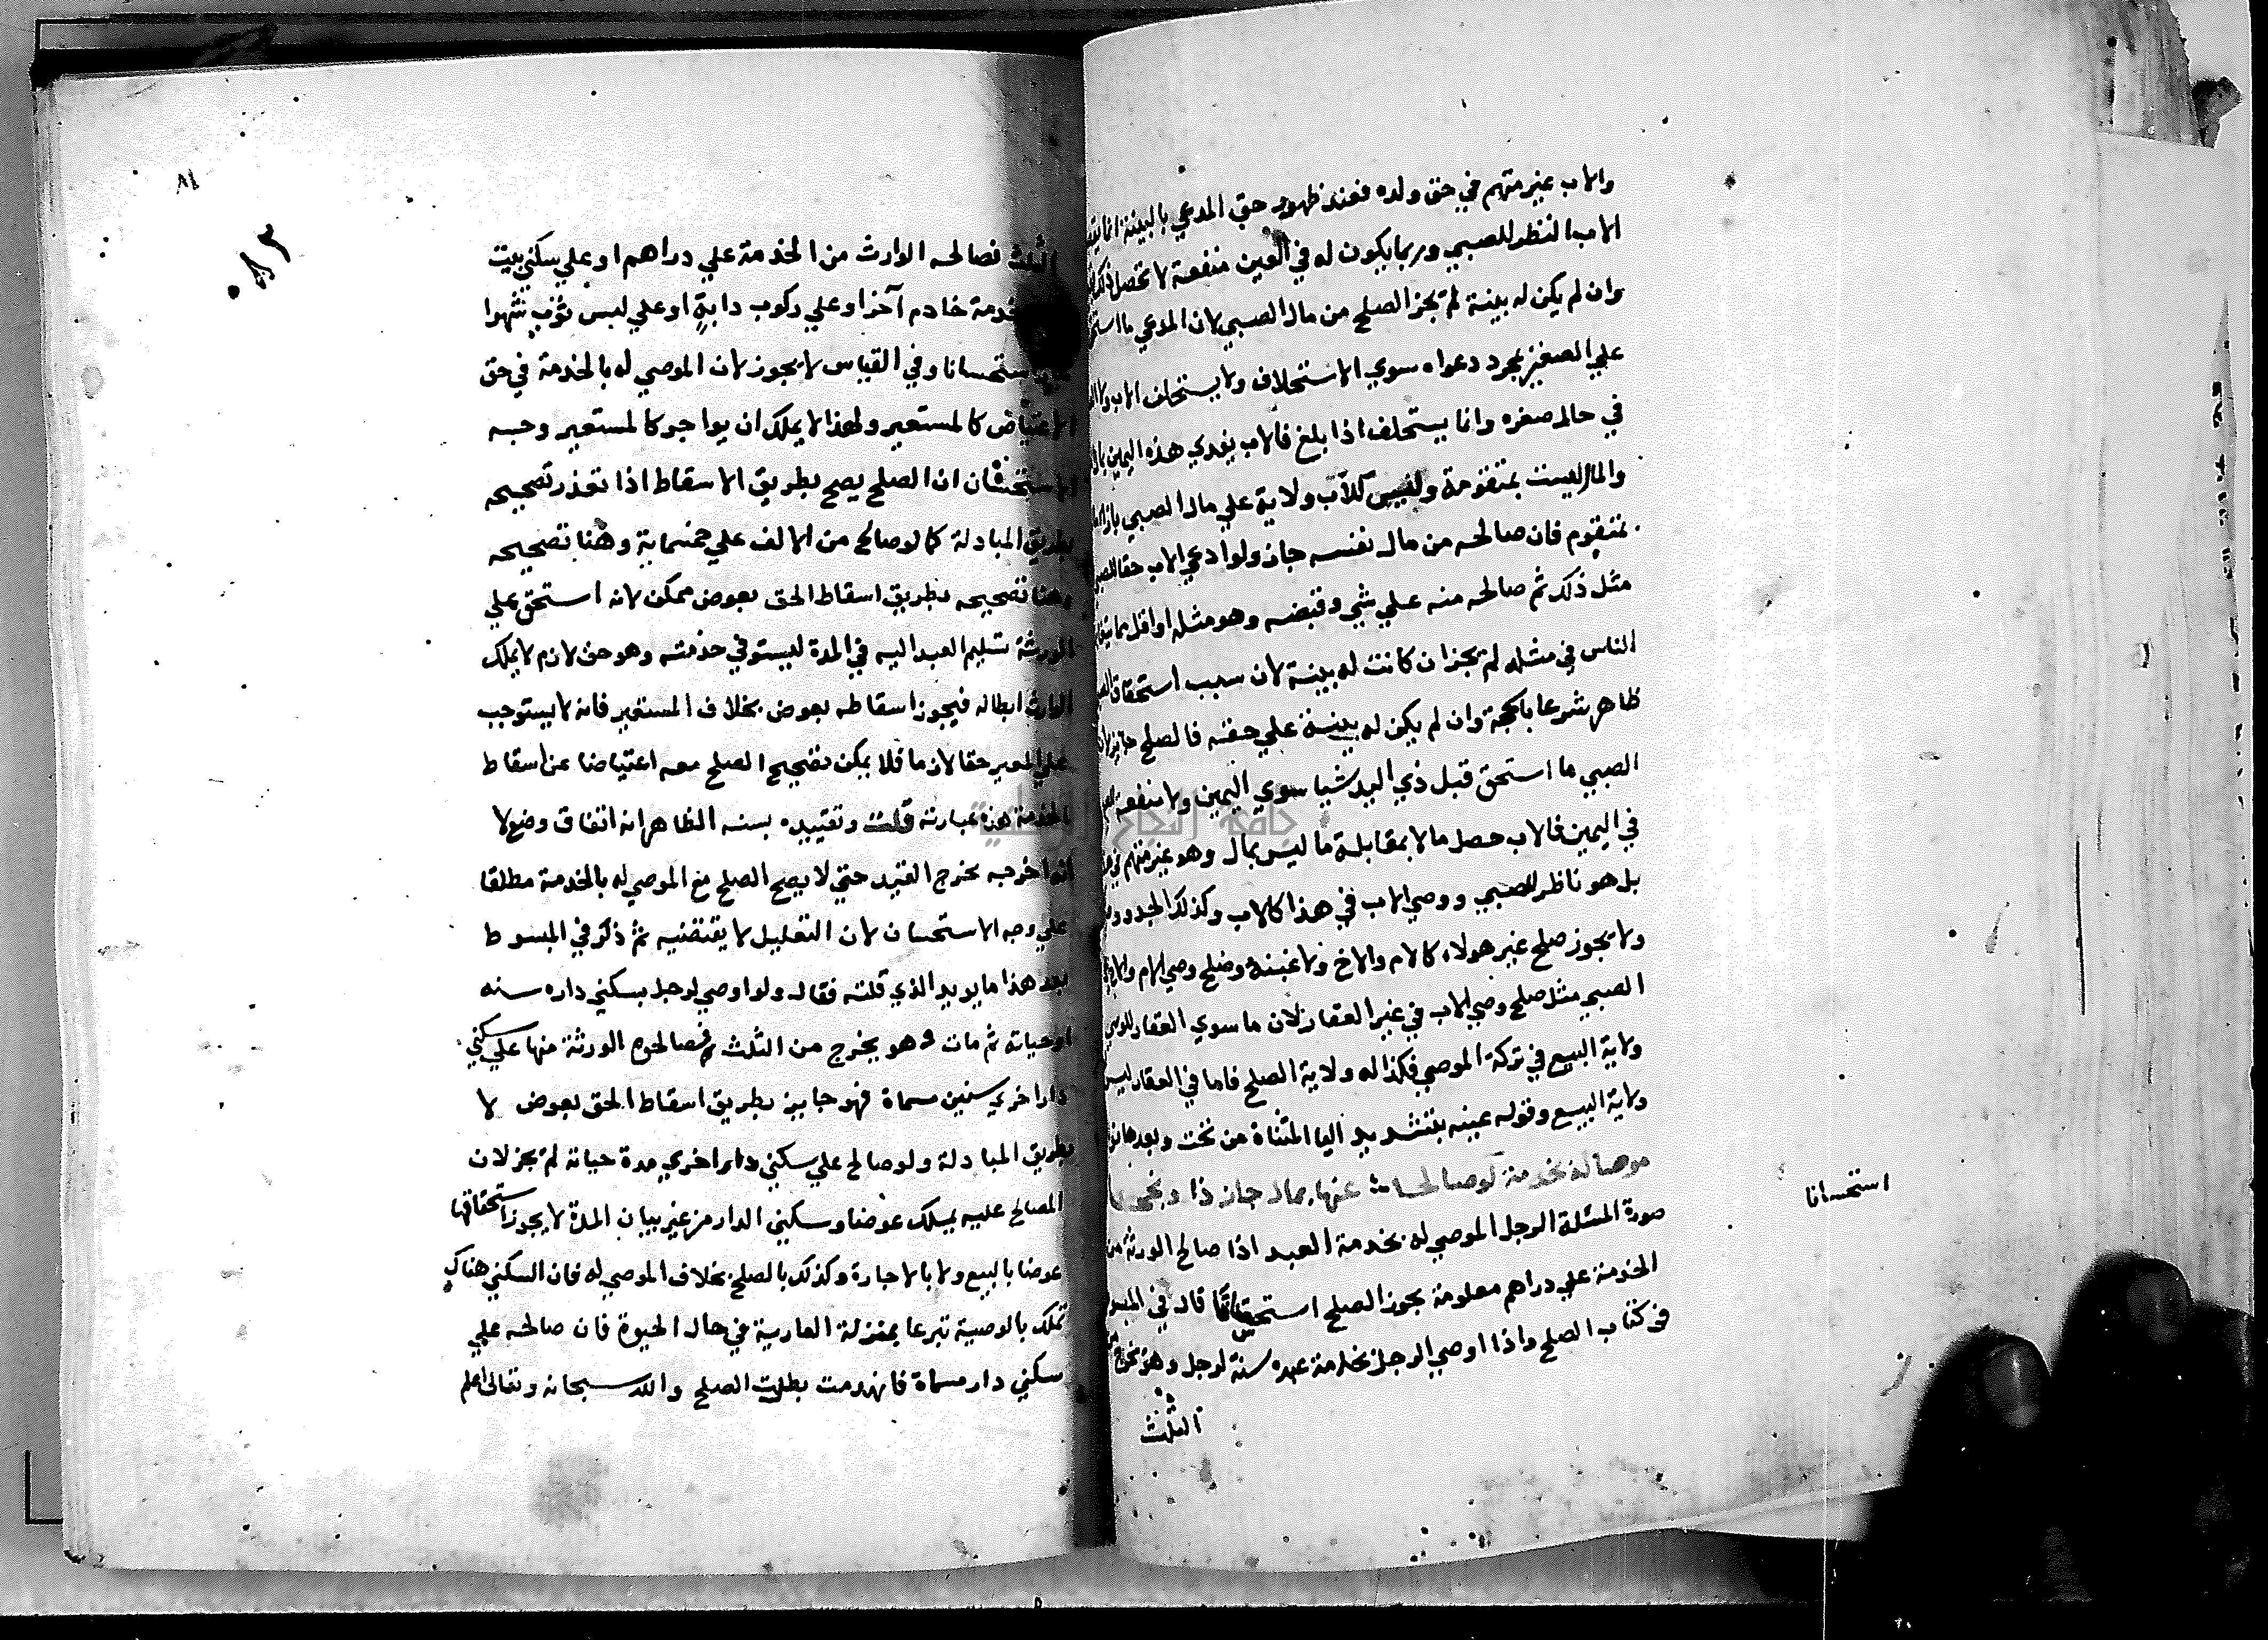 والاب غير متهم في حق ولده فعند ظهور حق المدعي بالبينة انما
الاب النظر للصبي وربما يكون له في العين منفعة لا تحصل ذلك
وان لم يكن له بينة لم يجز الصلح من مال الصبي لان المدعي ما استحق
علي الصغير بمجرد دعواه سوي الاستحلاف ولا يستحلف الاب ولا
في حال صغره وانما يستحلف اذا بلغ فالاب يفدي هذه اليمين
والمال ليست بمتقومة وليس للاب ولاية علي مال الصبي بازاء ما
بمتقوم فان صالحه من مال نفسه جاز ولو ادعي الاب حقا للصبي
مثل ذلك ثم صالحه منه علي شي وقبضه وهو مثله او اقل بما يتغابن
الناس في مثله لم يجز ان كانت له بينة لان سبب استحقاق
ظاهر شرعا بالحجة وان لم يكن له بينة علي حقه فالصلح جايز لان
الصبي ما استحق قبل ذي اليد شيا سوي اليمين ولا منفعة
في اليمين فالاب حصل مالا بمقابلة ما ليس بمال وهو غير متهم
بل هو ناظر للصبي ووصي الاب في هذا كالاب وكذلك الجد
ولا يجوز صلح غير هولاء كالام والاخ ولا غبنه وصلح وصي الام والاخ
الصبي مثل صلح وصي الاب في غير العقار لان ما سوي العقار للوصي
ولاية البيع في تركة الموصي فكذا له ولاية الصلح فاما في العقار ليس
ولاية البيع وقوله عينه بتشديد اليا المثناة من تحت وبعدها
موصا له بخدمة لو صالحا عنها بمال جاز ذا
صورة المسئلة الرجل الموصي له بخدمة العبد اذا صالح الورثة من
الخدمة علي دراهم معلومة يجوز الصلح قال في
استحسانا
في كتاب الصلح واذا اوصي الرجل بخدمة عبده سنة لرجل وهو يخرج من
الثلث
٨٢
٨١
الثلث فصالحه الوارث من الخدمة علي دراهم او علي سكني بيت
خدمة خادم آخر او علي ركوب دابة او علي لبس ثوب شهرا
استحسانا وفي القياس لا يجوز لان الموصي له بالخدمة في حق
الاعتياض كالمستعير ولهذا لا يملك ان يواجر كالمستعير وجه
الاستحسان ان الصلح يصح بطريق الاسقاط اذا تعذر تصحيحه
بطريق المبادلة كما لو صالح من الالف علي خمسماية وهنا تصحيحه
وهنا تصحيحه بطريق اسقاط الحق بعوض ممكن لانه استحق علي
الورثة تسليم العبد اليه في المدة ليستوفي خدمته وهو حق لازم لا يملك
الوارث ابطاله فيجوز اسقاطه بعوض بخلاف المستعير فانه لا يستوجب
علي المعير حقا لازما فلا يمكن تصحيح الصلح معه اعتياضا عن اسقاط
الخدمة هذه عبارته قلت وتقييده بسنه الظاهر انه اتفاق وضع لا
انه اخرجه مخرج القيد حتي لا يصح الصلح مع الموصي له بالخدمة مطلقا
علي وجه الاستحسان لان التعليل لا يقتضيه ثم ذكر في المبسوط
بعد هذا ما يويد الذي قلته فقال ولو اوصي لرجل بسكني داره سنه
او حياته ثم مات وهو يخرج من الثلث فصالحوه الورثة منها علي سكني
دار اخري سنين مسماة فهو جايز بطريق اسقاط الحق بعوض لا
بطريق المبادلة ولو صالح علي سكني دار اخري مدة حياته لم يجز لان
المصالح عليه يملك عوضا وسكني الدار من غير بيان المدة لا يجوز استحقاقها
عوضا بالبيع ولا بالاجارة وكذلك بالصلح بخلاف الموصي له فان السكني هناك
تملك بالوصية تبرعا بمنزلة العارية في حال الحيوة فان صالحه علي
سكني دار مسماة فانهدمت بطلت الصلح والله سبحانه وتعالى اعلم